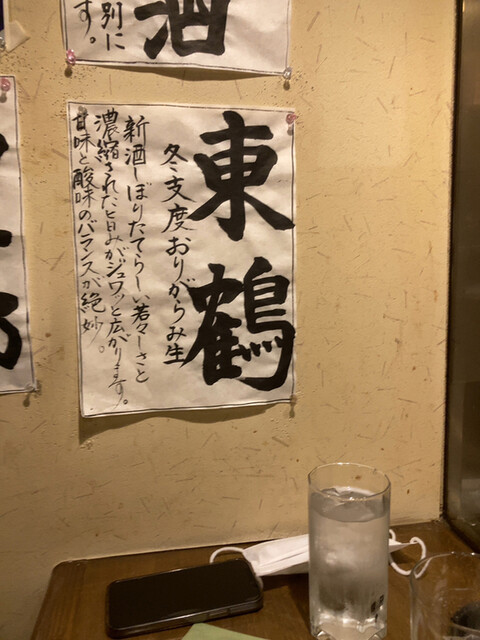 酒
別に
す。
東鶴
冬支度おりがらみ生
新酒しぼりたてらしい若々しさと
濃縮された旨みがジュワッと広がります。
甘味と酸味のバランスが絶妙。